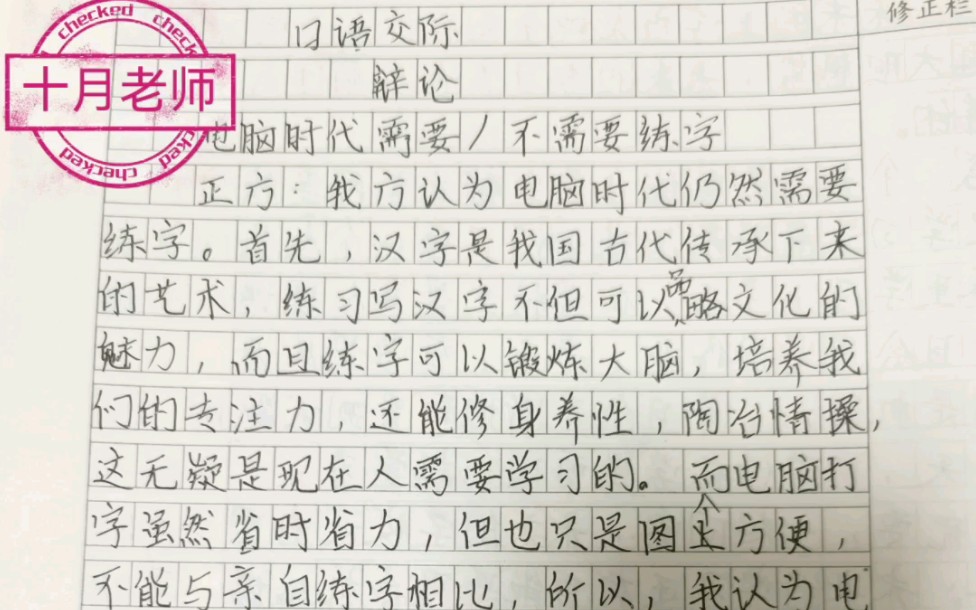 修正栏
口语交际
辩论
电脑时代需要/不需要练字
正方：我方认为电脑时代仍然需要
练字。首先，汉字是我国古代传承下来
的艺术，练习写汉字不但可以品略文化的
魅力，而且练字可以锻炼大脑，培养我
们的专注力，还能修身养性，陶冶情操，
这无疑是现在人需要学习的。而电脑打
字虽然省时省力，但也只是图个方便，
不能与亲自练字相比，所以，我认为电
checked
十月老师
checked